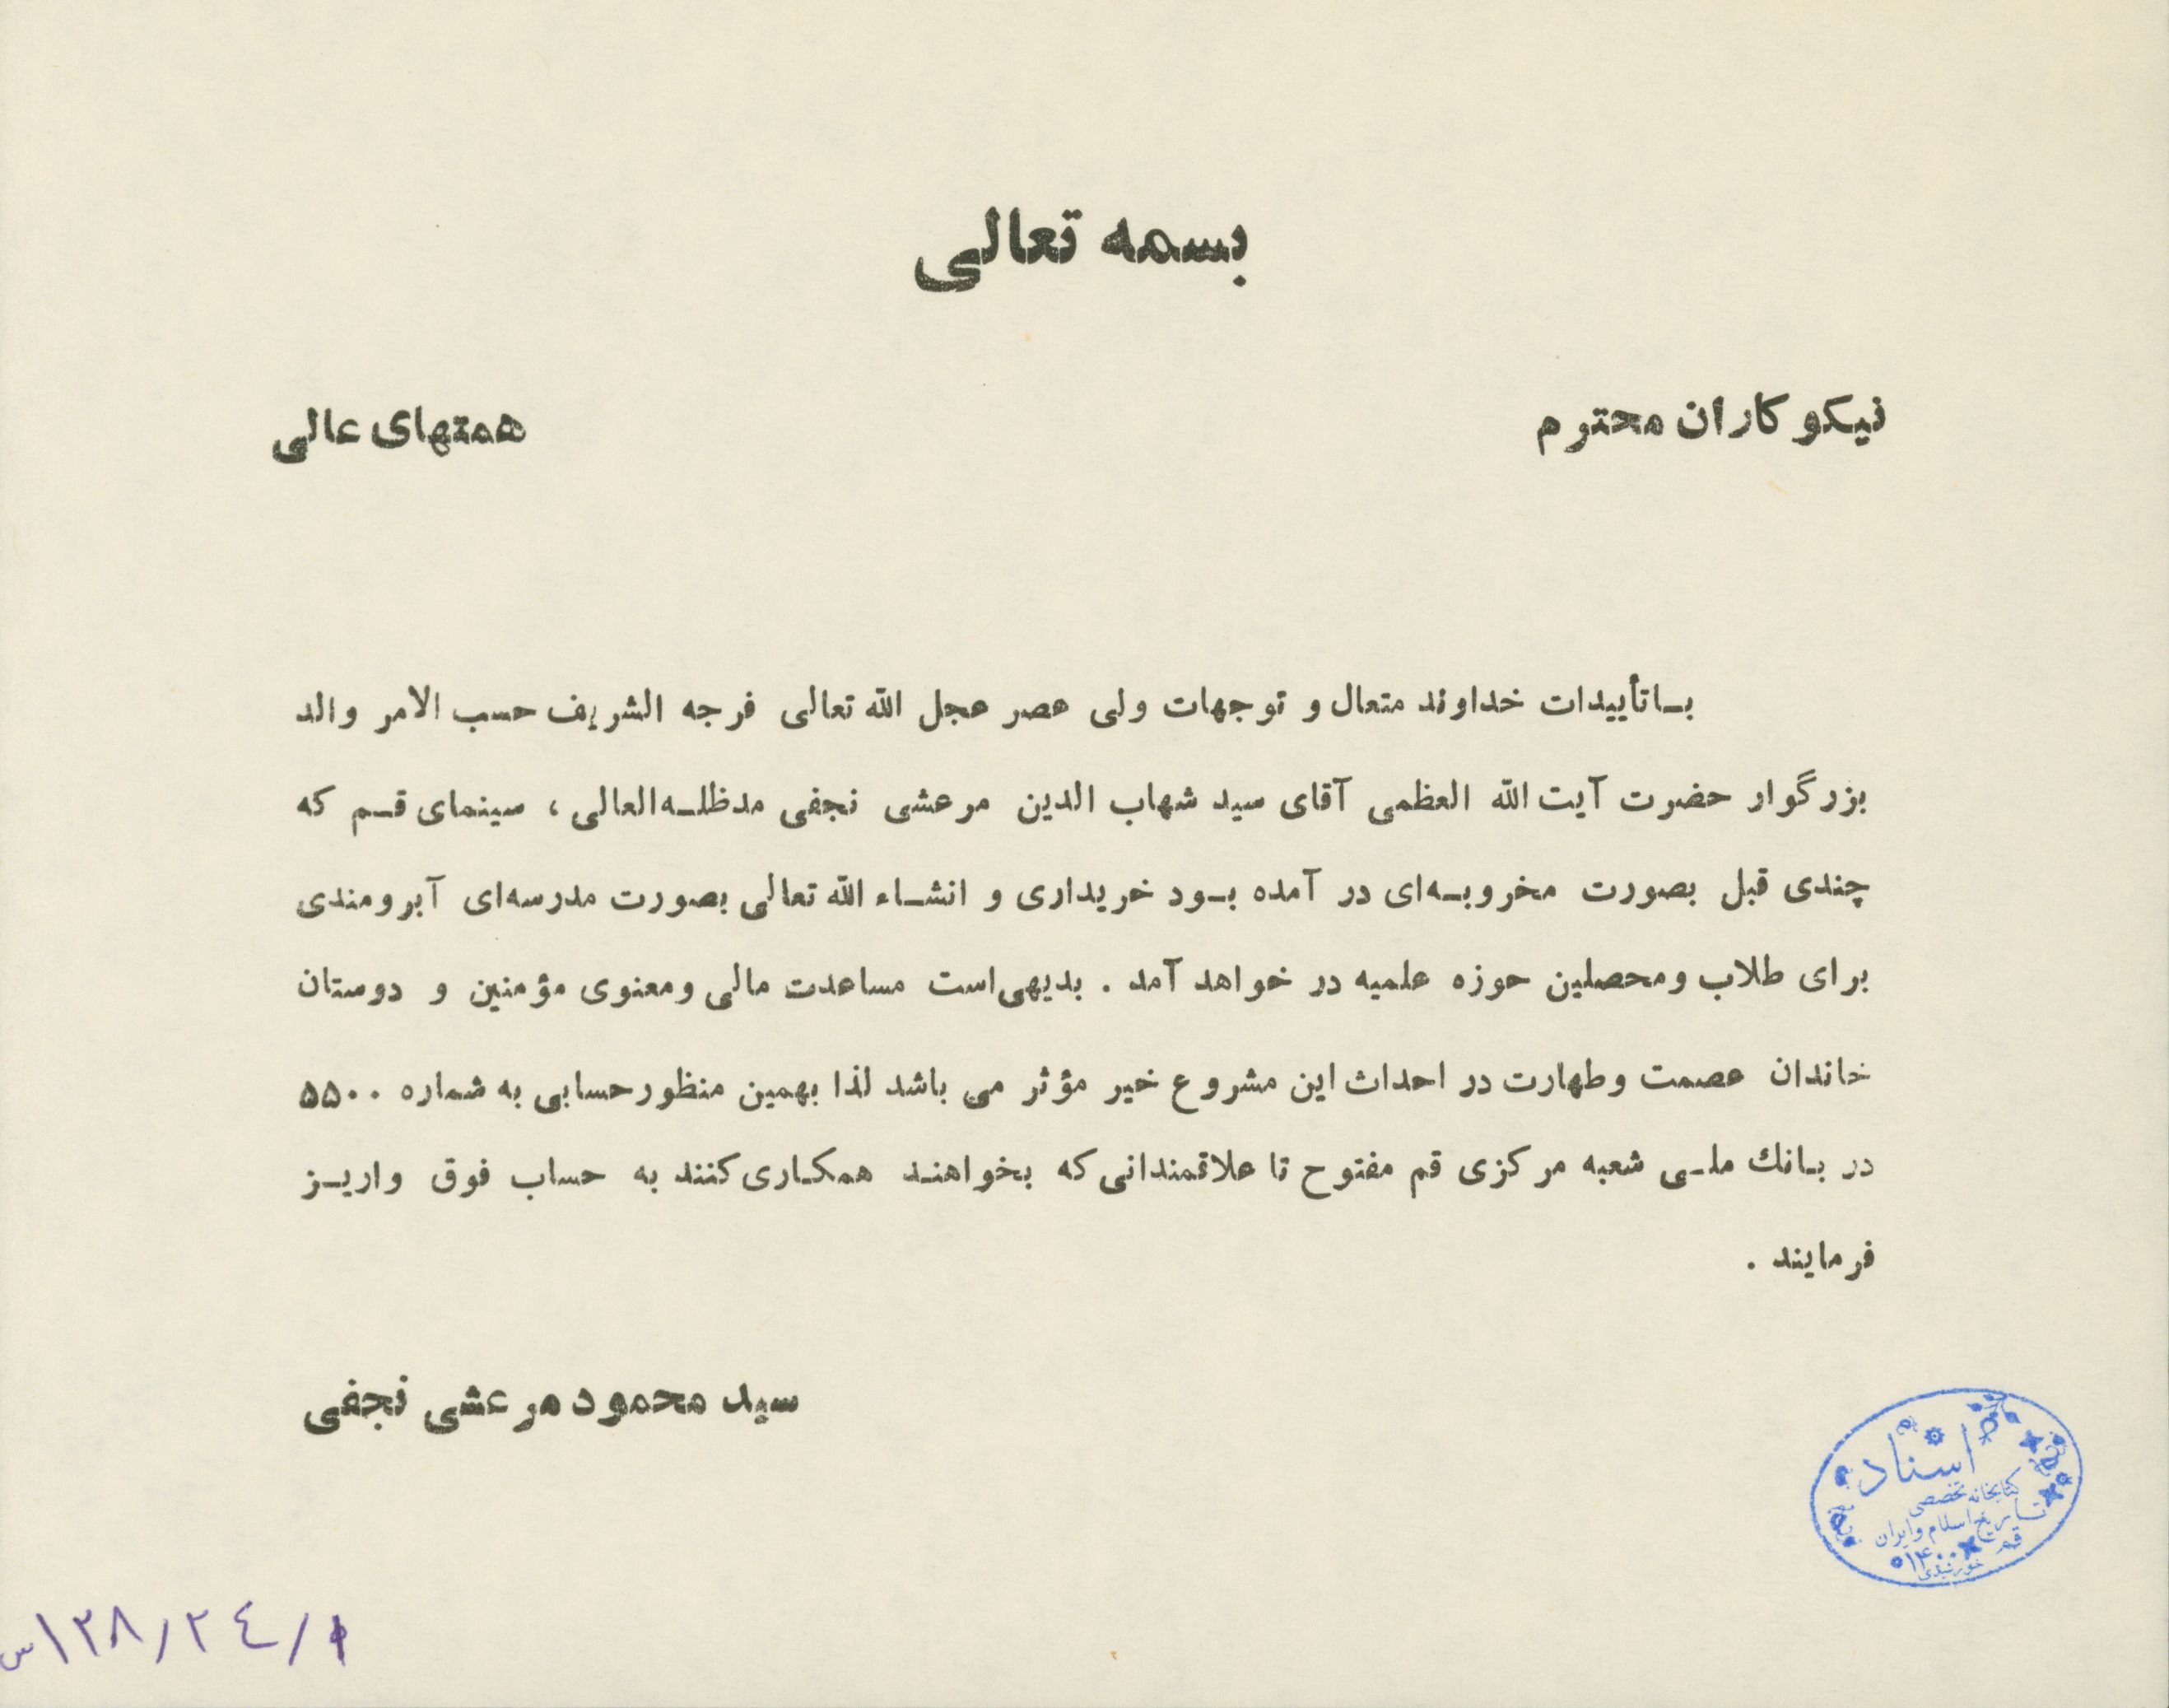 بسمه تعالی
نیکوکاران محترم همتهای عالی
بـاتأییدات خداوند متعال و توجهات ولی عصر عجل الله تعالی فرجه الشریف حسب الامر والد
بزرگوار حضرت آیت الله العظمی آقای سید شهاب الدین مرعشی نجفی مدظلـه‌العالی ، سینمای قـم که
چندی قبل بصورت مخروبـه‌ای در آمده بـود خریداری و انشـاء الله تعالی بصورت مدرسه‌ای آبرومندی
برای طلاب ومحصلین حوزه علمیه در خواهد آمد . بدیهی‌است مساعدت مالی ومعنوی مؤمنین و دوستان
خاندان عصمت وطهارت در احداث این مشروع خیر مؤثر می باشد لذا بهمین منظورحسابی به شماره ۵۵۰۰
در بـانك ملـی شعبه مرکزی قم مفتوح تا علاقمندانی‌که بخواهنـد همکـاری‌کنند به حساب فوق واریـز
فرمایند .
سید محمود مرعشی نجفی
اسناد
کتابخانه تخصصی
تاریخ اسلام و ایران
قم
۱۲۸/۲٤/۱س